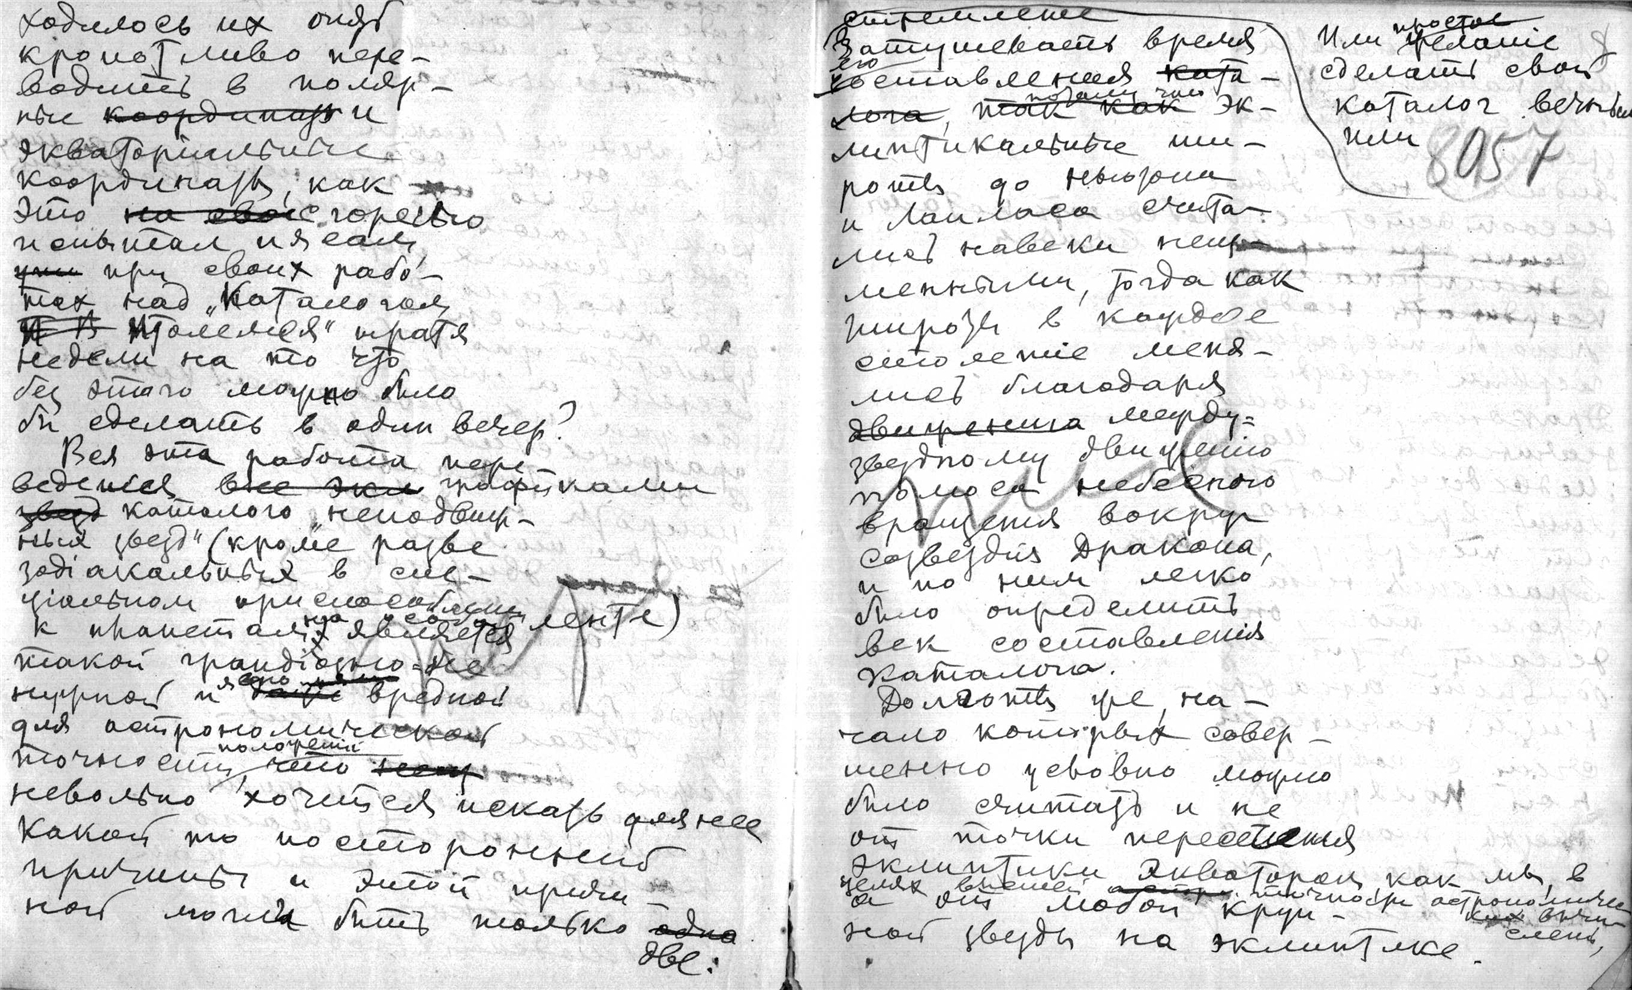 ходилось их опять
кропотливо пере-
водить в поляр-
ные координаты и
экваторіальные
координаты, как
это на своис горестью
испытал и я сам,
при своих рабо-
тах над „Каталогом
Птолемея" тратя
недели на то что
без этого можно было
бы сделать в один вечер?
Вся эта работа пере-
ведения все экл графиками
звезд каталога „неподвиж-
ных звезд" (кроме разве
зодіакальных в спе-
ціально приспособленной ленте)
к планетам является
такой грандіозно-не
нужной и явно вредной
для астрономической
точности положения что
невольно хочется искать для нее
какой то посторонней
причины и этой причи-
ной могли быть только одна
две:
стремление
затушевать время
его составления ката-
лога, так как потому что эк-
липтикальные ши-
роты до Ньютона
и Лапласа счита-
лись навеки неиз-
менными, тогда как
широты в каждое
столетіе меня-
лись благодаря
движения между=
звездному движенію
полюса небесного
вращения вокруг
созвездія Дракона,
и по ним легко
было определить
век составленія
каталога.
Долготы же, на-
чало которых совер-
шенно условно можно
было считать и не
от точки пересечения
эклиптики экватором, как мы, в
целях высшей точности астрономичес
ких вычи
слений,
а от любой круп-
ной звезды на эклиптике.
Или простое желаніе
сделать свой
каталог вечным
или
8
8057